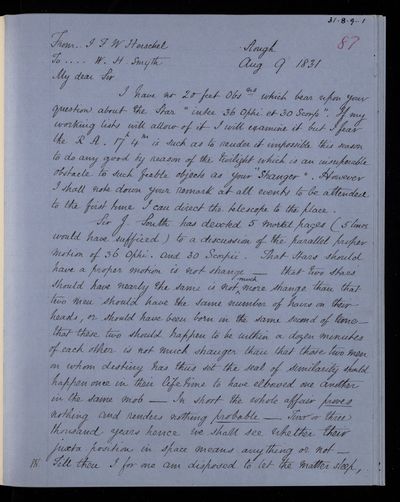 31·8·9·1
87
From.. J F W Herschel Slough
To .... W. H. Smyth Aug 9 1831
My dear Sir
I have no 20 feet Obsns which bear upon your
question about the Star "inter 36 Ophi. et 30 Scorp". If my
working lists will allow of it I will examine it but I fear
the R. A. 17h 4m is such as to render it impossible this season
to do any good by reason of the twilight which is an insuperable
obstacle to such feeble objects as your "Stranger". However
I shall note down your remark at all events to be attended
to the first time I can direct the telescope to the place.
Sir J. South has devoted 5 mortal pages (5 lines
would have sufficed) to a discussion of the parallel proper
motion of 36 Ophi. and 30 Scorpii. That stars should
have a proper motion is not strange — that two stars
should have nearly the same is not much more strange than that
two men should have the same number of hairs on their
heads, or should have been born in the same second of time—
that these two should happen to be within a dozen minutes
of each other is not much stranger than that those two men
on whom destiny has thus set the seal of similarity should
happen once in their life time to have elbowed one another
in the same mob — In short the whole affair proves
nothing and renders nothing probable — Two or three
thousand years hence we shall see whether their
juxta position in space means anything or not —
Till then I for one am disposed to let the matter sleep,